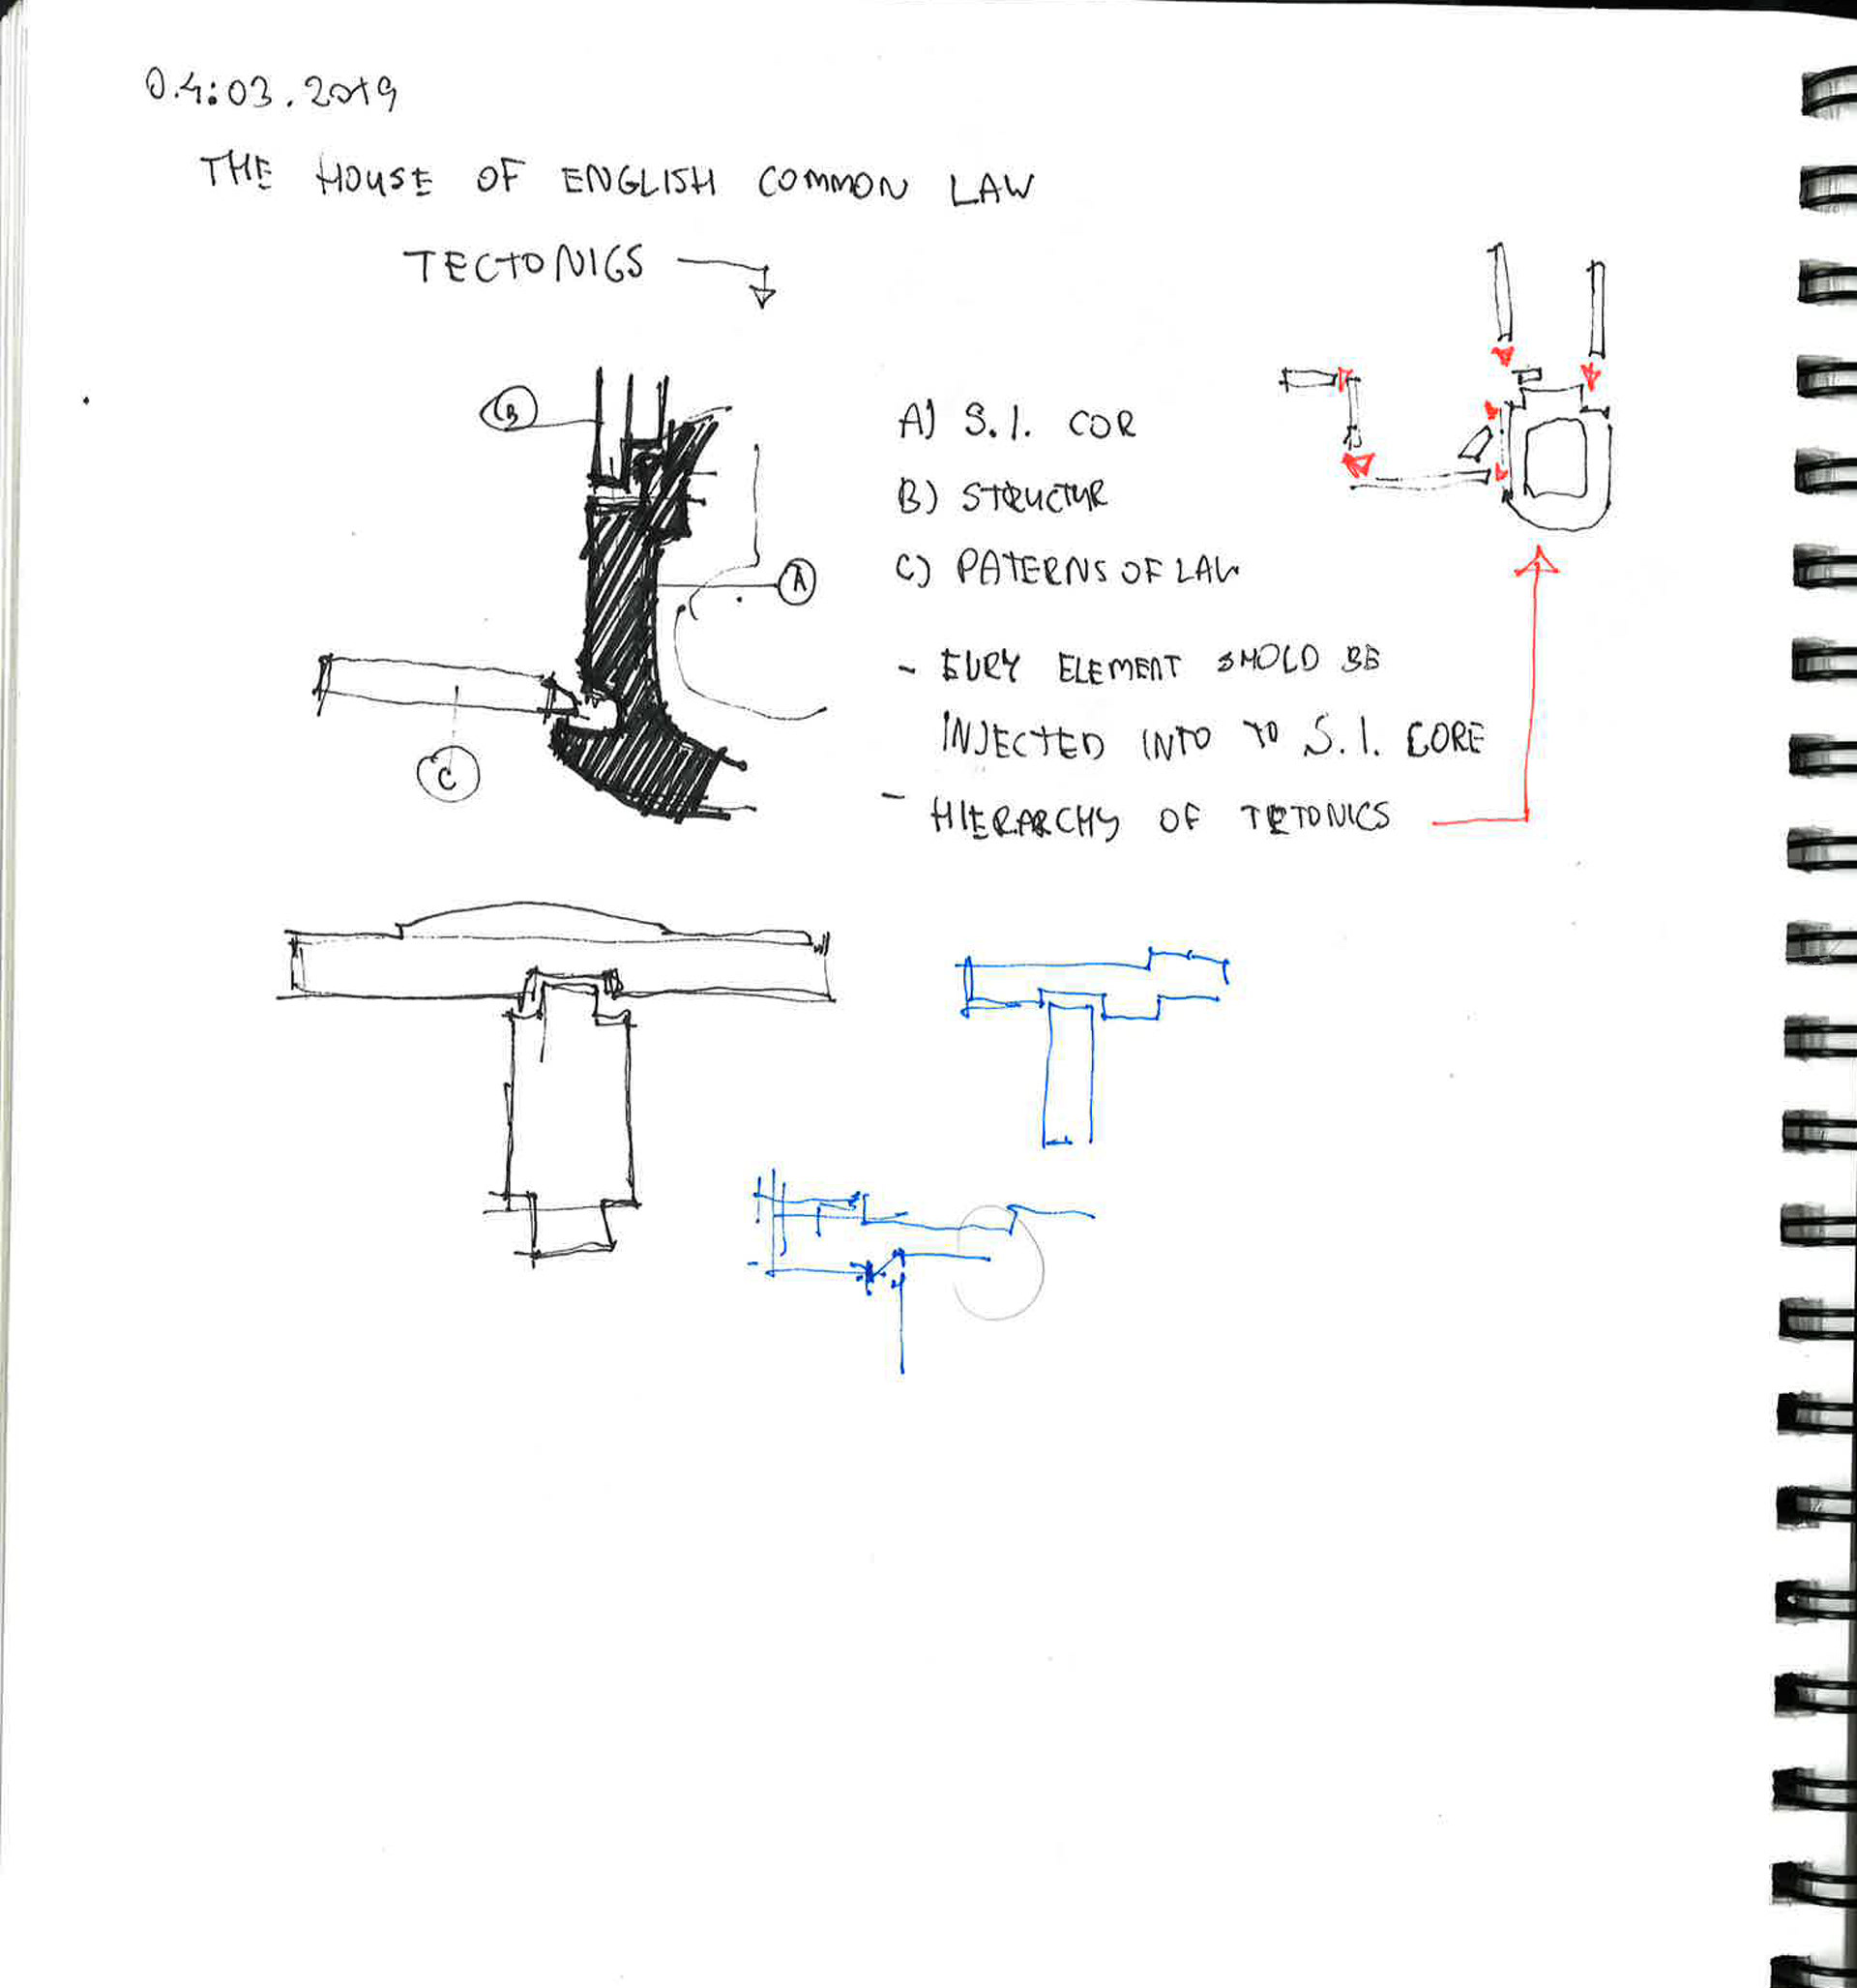 04:03.2019
THE HOUSE OF ENGLISH COMMON LAW
TECTONICS
B
A
C
A) S.I. COR
B) STRUCTUR
C) PATERNS OF LAW
- EVRY ELEMENT SHOLD BE
INJECTED INTO TO S.I. CORE
- HIERARCHY OF TETONICS